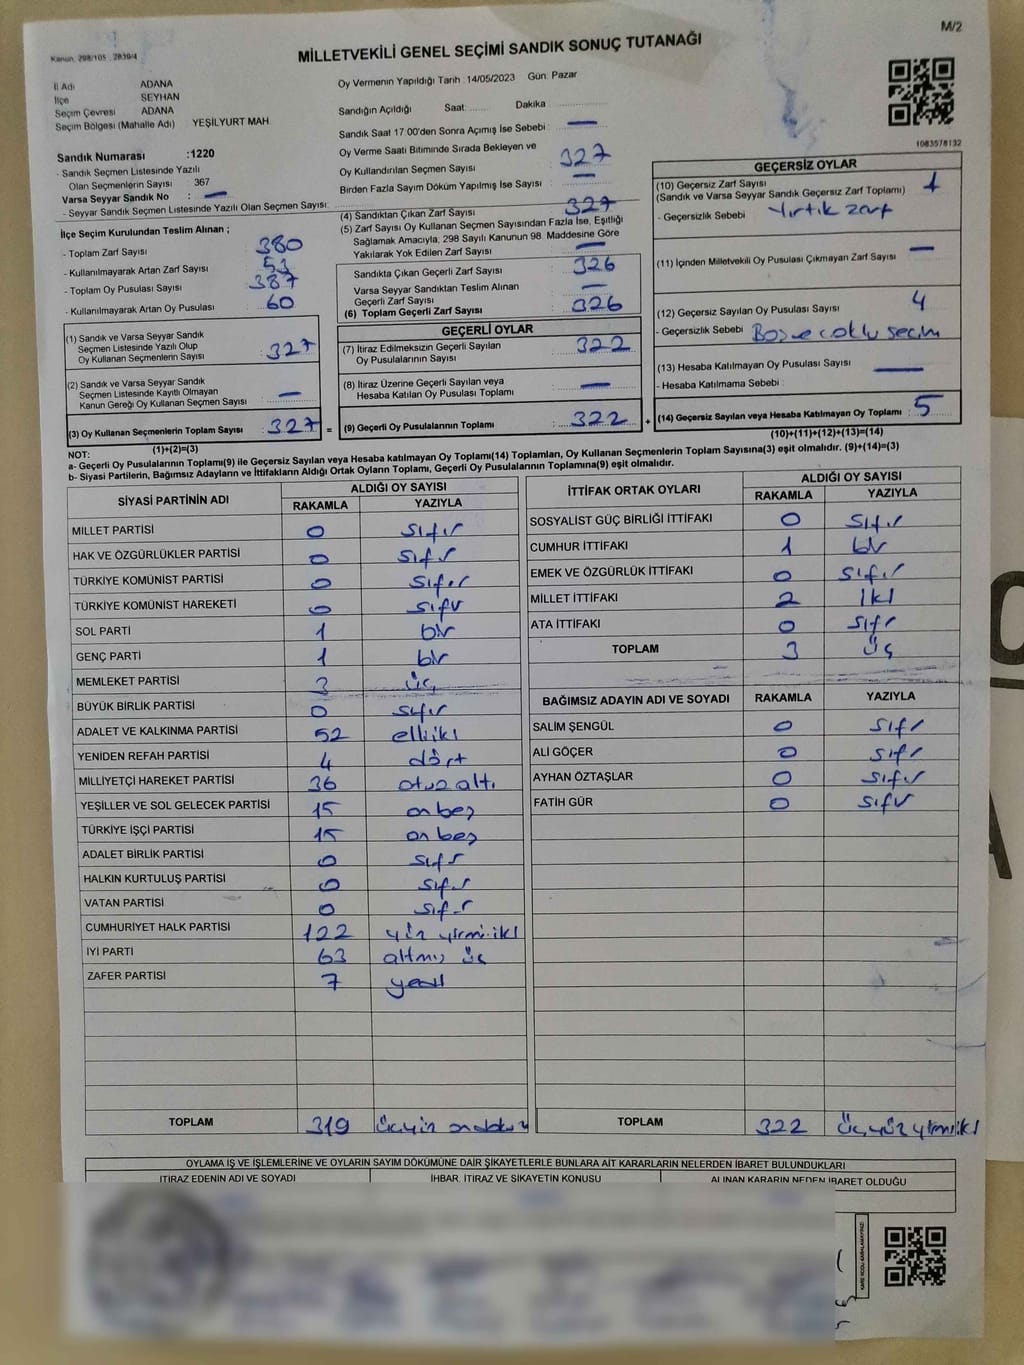 M/2
Kanun, 298/105 , 2839/4
MİLLETVEKİLİ GENEL SEÇİMİ SANDIK SONUÇ TUTANAĞI
İl Adı ADANA
İlçe SEYHAN
Seçim Çevresi ADANA
Seçim Bölgesi (Mahalle Adı) YEŞİLYURT MAH.
Sandık Numarası :1220
- Sandık Seçmen Listesinde Yazılı
Olan Seçmenlerin Sayısı 367
Varsa Seyyar Sandık No : —
- Seyyar Sandık Seçmen Listesinde Yazılı Olan Seçmen Sayısı:
İlçe Seçim Kurulundan Teslim Alınan ;
- Toplam Zarf Sayısı 380
- Kullanılmayarak Artan Zarf Sayısı 53
- Toplam Oy Pusulası Sayısı 387
- Kullanılmayarak Artan Oy Pusulası 60
(1) Sandık ve Varsa Seyyar Sandık
Seçmen Listesinde Yazılı Olup
Oy Kullanan Seçmenlerin Sayısı : 327
(2) Sandık ve Varsa Seyyar Sandık
Seçmen Listesinde Kayıtlı Olmayan
Kanun Gereği Oy Kullanan Seçmen Sayısı : —
(3) Oy Kullanan Seçmenlerin Toplam Sayısı : 327 =
(1)+(2)=(3)
Oy Vermenin Yapıldığı Tarih :14/05/2023 Gün: Pazar
Sandığın Açıldığı Saat:........ Dakika ................
Sandık Saat 17:00'den Sonra Açımış İse Sebebi : —
Oy Verme Saati Bitiminde Sırada Bekleyen ve
Oy Kullandırılan Seçmen Sayısı : 327
Birden Fazla Sayım Döküm Yapılmış İse Sayısı : —
(4) Sandıktan Çıkan Zarf Sayısı 327
(5) Zarf Sayısı Oy Kullanan Seçmen Sayısından Fazla İse, Eşitliği
Sağlamak Amacıyla, 298 Sayılı Kanunun 98. Maddesine Göre
Yakılarak Yok Edilen Zarf Sayısı : —
Sandıkta Çıkan Geçerli Zarf Sayısı : 326
Varsa Seyyar Sandıktan Teslim Alınan
Geçerli Zarf Sayısı : —
(6) Toplam Geçerli Zarf Sayısı : 326
GEÇERLİ OYLAR
(7) İtiraz Edilmeksizin Geçerli Sayılan
Oy Pusulalarının Sayısı : 322
(8) İtiraz Üzerine Geçerli Sayılan veya
Hesaba Katılan Oy Pusulası Toplamı : —
(9) Geçerli Oy Pusulalarının Toplamı : 322 +
1083578132
GEÇERSİZ OYLAR
(10) Geçersiz Zarf Sayısı : 1
(Sandık ve Varsa Seyyar Sandık Geçersiz Zarf Toplamı)
- Geçersizlik Sebebi : Yırtık zarf
(11) İçinden Milletvekili Oy Pusulası Çıkmayan Zarf Sayısı : —
(12) Geçersiz Sayılan Oy Pusulası Sayısı : 4
- Geçersizlik Sebebi : Boş ve çoklu seçim
(13) Hesaba Katılmayan Oy Pusulası Sayısı : —
- Hesaba Katılmama Sebebi :
(14) Geçersiz Sayılan veya Hesaba Katılmayan Oy Toplamı : 5
(10)+(11)+(12)+(13)=(14)
NOT:
a- Geçerli Oy Pusulalarının Toplamı(9) ile Geçersiz Sayılan veya Hesaba katılmayan Oy Toplamı(14) Toplamları, Oy Kullanan Seçmenlerin Toplam Sayısına(3) eşit olmalıdır. (9)+(14)=(3)
b- Siyasi Partilerin, Bağımsız Adayların ve İttifakların Aldığı Ortak Oyların Toplamı, Geçerli Oy Pusulalarının Toplamına(9) eşit olmalıdır.
SİYASİ PARTİNİN ADI ALDIĞI OY SAYISI
RAKAMLA YAZIYLA
MİLLET PARTİSİ 0 sıfır
HAK VE ÖZGÜRLÜKLER PARTİSİ 0 sıfır
TÜRKİYE KOMÜNİST PARTİSİ 0 sıfır
TÜRKİYE KOMÜNİST HAREKETİ 0 sıfır
SOL PARTİ 1 bir
GENÇ PARTİ 1 bir
MEMLEKET PARTİSİ 3 üç
BÜYÜK BİRLİK PARTİSİ 0 sıfır
ADALET VE KALKINMA PARTİSİ 52 elliiki
YENİDEN REFAH PARTİSİ 4 dört
MİLLİYETÇİ HAREKET PARTİSİ 36 otuz altı
YEŞİLLER VE SOL GELECEK PARTİSİ 15 on beş
TÜRKİYE İŞÇİ PARTİSİ 15 on beş
ADALET BİRLİK PARTİSİ 0 sıfır
HALKIN KURTULUŞ PARTİSİ 0 sıfır
VATAN PARTİSİ 0 sıfır
CUMHURİYET HALK PARTİSİ 122 yüz yirmi iki
İYİ PARTİ 63 altmış üç
ZAFER PARTİSİ 7 yedi
TOPLAM 319 üçyüz ondokuz
İTTİFAK ORTAK OYLARI ALDIĞI OY SAYISI
RAKAMLA YAZIYLA
SOSYALİST GÜÇ BİRLİĞİ İTTİFAKI 0 sıfır
CUMHUR İTTİFAKI 1 bir
EMEK VE ÖZGÜRLÜK İTTİFAKI 0 sıfır
MİLLET İTTİFAKI 2 iki
ATA İTTİFAKI 0 sıfır
TOPLAM 3 üç
BAĞIMSIZ ADAYIN ADI VE SOYADI RAKAMLA YAZIYLA
SALİM ŞENGÜL 0 sıfır
ALİ GÖÇER 0 sıfır
AYHAN ÖZTAŞLAR 0 sıfır
FATİH GÜR 0 sıfır
TOPLAM 322 üçyüz yirmiiki
OYLAMA İŞ VE İŞLEMLERİNE VE OYLARIN SAYIM DÖKÜMÜNE DAİR ŞİKAYETLERLE BUNLARA AİT KARARLARIN NELERDEN İBARET BULUNDUKLARI
İTİRAZ EDENİN ADI VE SOYADI İHBAR, İTİRAZ VE ŞİKAYETİN KONUSU ALINAN KARARIN NEDEN İBARET OLDUĞU
KARE KODU KARALAMAYINIZ!